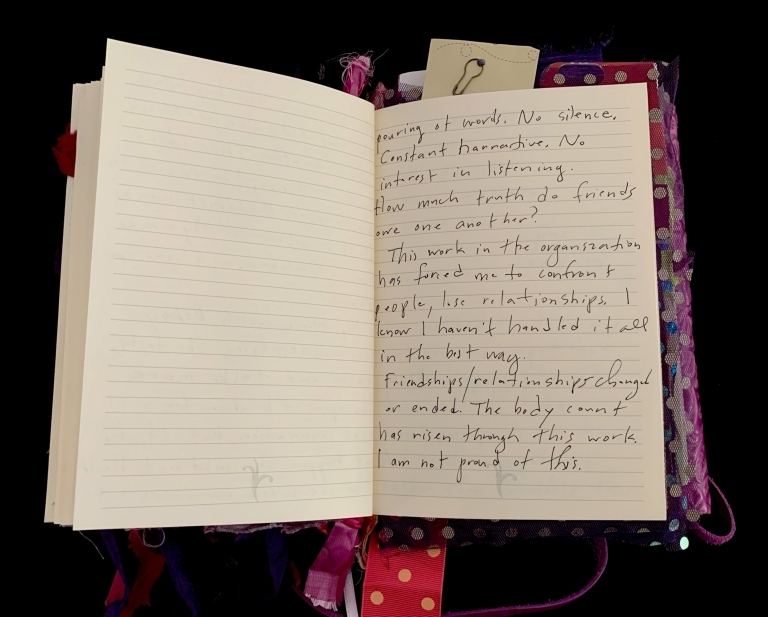 pouring of words. No silence.
Constant narrative. No
interest in listening.
How much truth do friends
owe one another?
This work in the organization
has forced me to confront
people, lose relationships. I
know I haven't handled it all
in the best way.
Friendships/relationships changed
or ended. The body count
has risen through this work.
I am not proud of this.